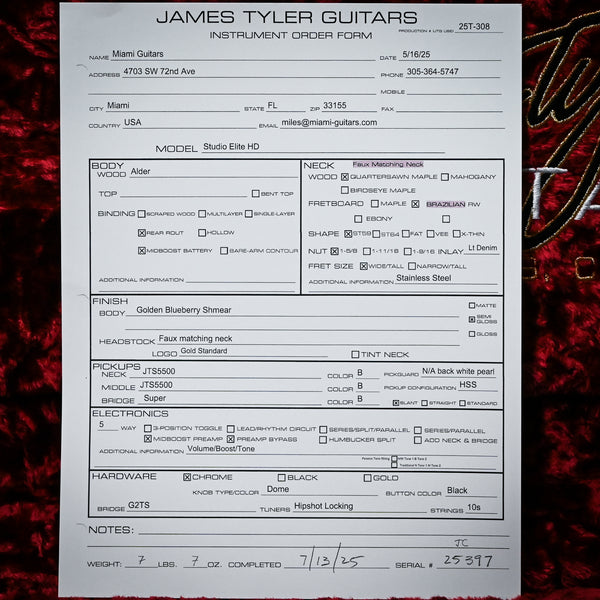 JAMES TYLER GUITARS
INSTRUMENT ORDER FORM
PRODUCTION # UTG USE: 25T-308
NAME Miami Guitars DATE 5/16/25
ADDRESS 4703 SW 72nd Ave PHONE 305-364-5747
MOBILE
CITY Miami STATE FL ZIP 33155 FAX
COUNTRY USA EMAIL miles@miami-guitars.com
MODEL Studio Elite HD
BODY
WOOD Alder
TOP ☐ BENT TOP
BINDING ☐ SCRAPED WOOD ☐ MULTILAYER ☐ SINGLE-LAYER
☒ REAR ROUT ☐ HOLLOW
☒ MIDBOOST BATTERY ☐ BARE-ARM CONTOUR
ADDITIONAL INFORMATION
NECK Faux Matching Neck
WOOD ☒ QUARTERSAWN MAPLE ☐ MAHOGANY
☐ BIRDSEYE MAPLE
FRETBOARD ☐ MAPLE ☒ BRAZILIAN RW
☐ EBONY ☐
SHAPE ☒ ST59 ☐ ST64 ☐ FAT ☐ VEE ☐ X-THIN
NUT ☒ 1-5/8 ☐ 1-11/16 ☐ 1-9/16 INLAY Lt Denim
FRET SIZE ☒ WIDE/TALL ☐ NARROW/TALL
ADDITIONAL INFORMATION Stainless Steel
FINISH
BODY Golden Blueberry Shmear
☐ MATTE
☒ SEMI GLOSS
☐ GLOSS
HEADSTOCK Faux matching neck
LOGO Gold Standard ☐ TINT NECK
PICKUPS
NECK JTS5500 COLOR B PICKGUARD N/A back white pearl
MIDDLE JTS5500 COLOR B PICKUP CONFIGURATION HSS
BRIDGE Super COLOR B ☒ SLANT ☐ STRAIGHT ☐ STANDARD
ELECTRONICS
5 WAY ☐ 3-POSITION TOGGLE ☐ LEAD/RHYTHM CIRCUIT ☐ SERIES/SPLIT/PARALLEL ☐ SERIES/PARALLEL
☒ MIDBOOST PREAMP ☒ PREAMP BYPASS ☐ HUMBUCKER SPLIT ☐ ADD NECK & BRIDGE
ADDITIONAL INFORMATION Volume/Boost/Tone
HARDWARE ☒ CHROME ☐ BLACK ☐ GOLD
KNOB TYPE/COLOR Dome BUTTON COLOR Black
BRIDGE G2TS TUNERS Hipshot Locking STRINGS 10s
NOTES:
JC
WEIGHT: 7 LBS. 7 OZ. COMPLETED 7/13/25 SERIAL # 25397